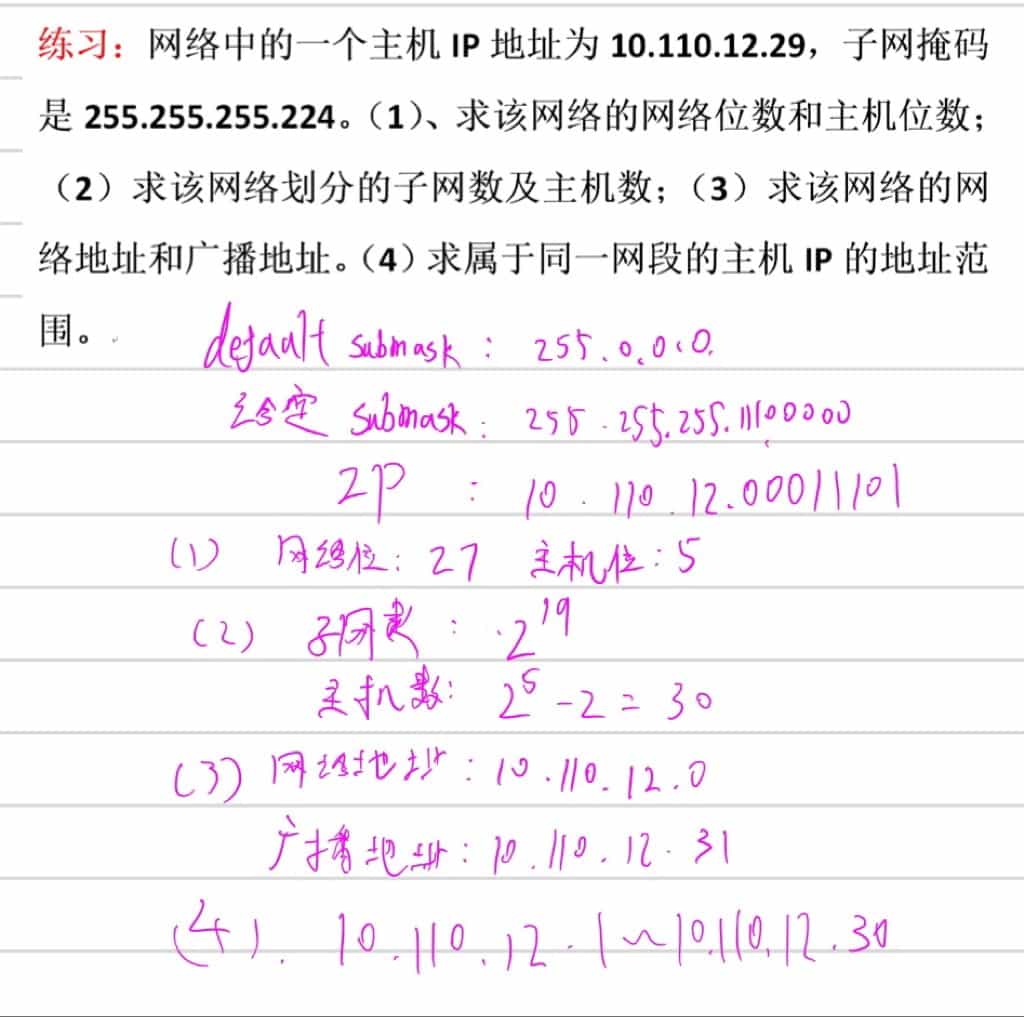 练习：网络中的一个主机 IP 地址为 10.110.12.29，子网掩码
是 255.255.255.224。（1）、求该网络的网络位数和主机位数；
（2）求该网络划分的子网数及主机数；（3）求该网络的网
络地址和广播地址。（4）求属于同一网段的主机 IP 的地址范
围。
default submask : 255.0.0.0.
给定 submask : 255.255.255.11100000
IP : 10.110.12.00011101
(1) 网络位: 27 主机位: 5
(2) 子网数 : 2^19
主机数: 2^5 - 2 = 30
(3) 网络地址 : 10.110.12.0
广播地址 : 10.110.12.31
(4). 10.110.12.1～10.110.12.30